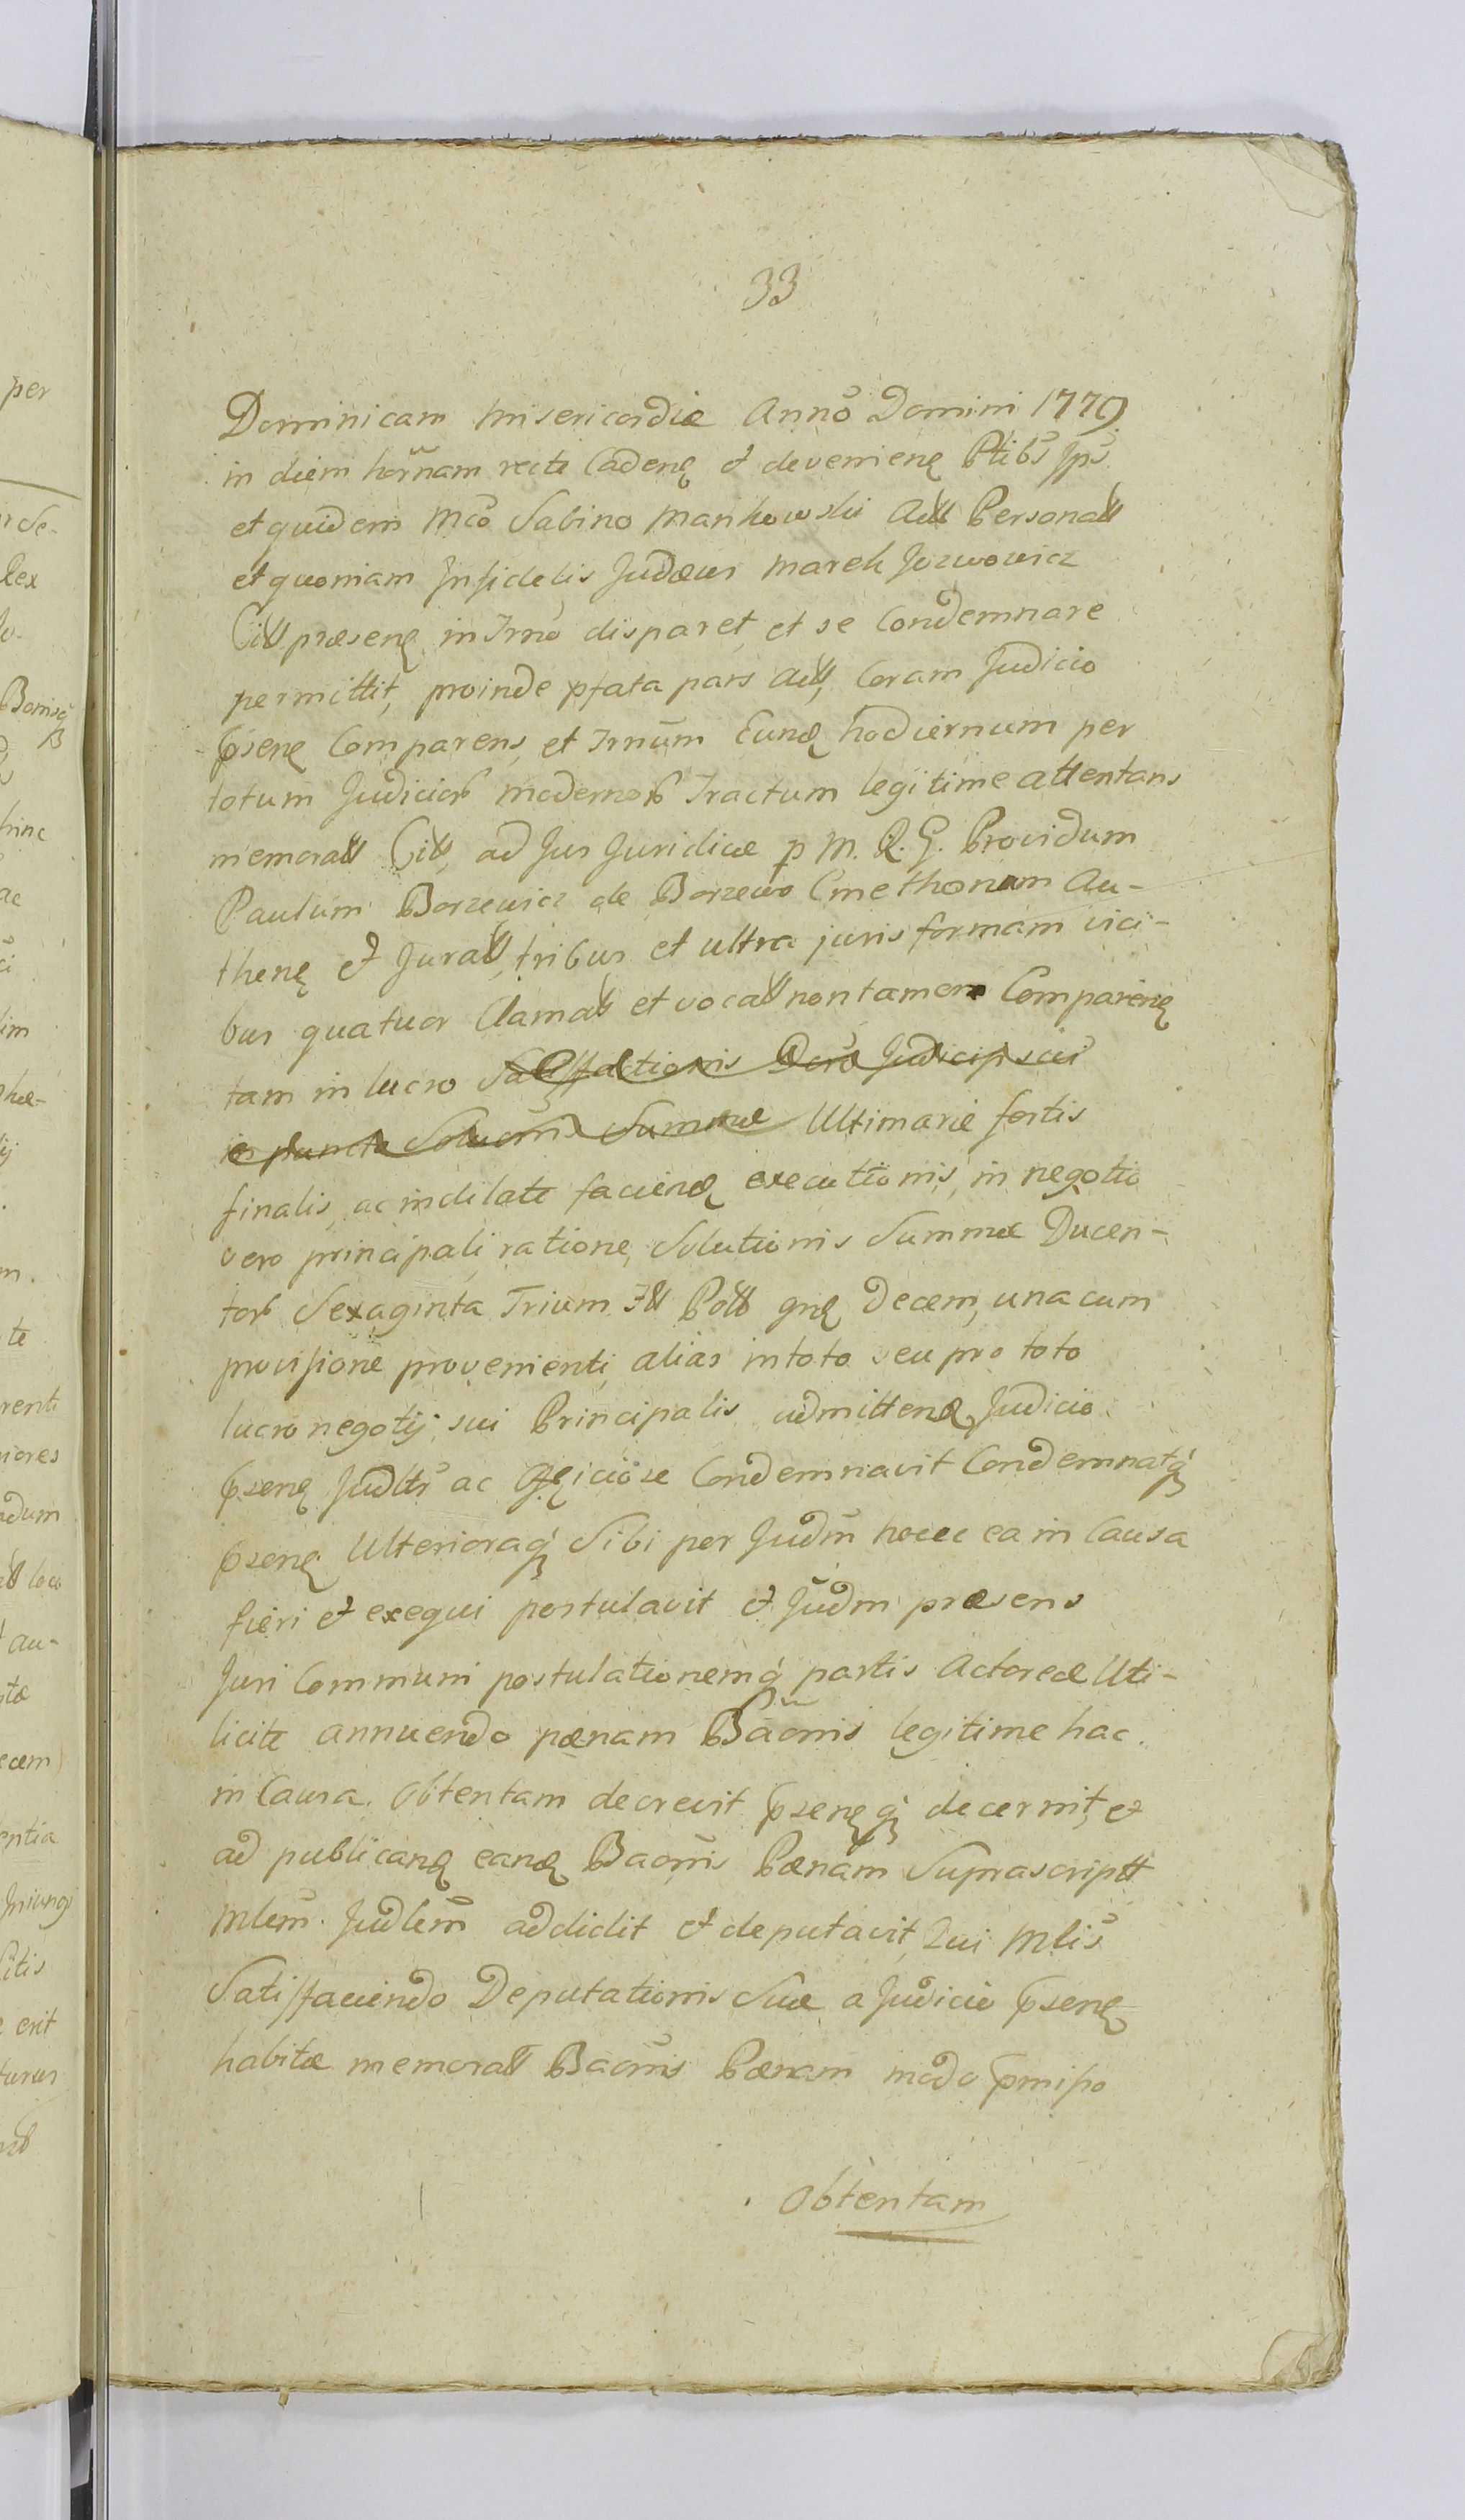 33
Dominicam Misericordiæ Annõ Domini 1779
in diem horñnam recte Cadenꝗ et devenienꝗ Ptibꝰ Ipꝰ
et quidem Mcõ Sabino Mankowski Actt Personatt
et quoniam Infidelis Judæus Marek Jozwowicz
Citt præsenꝗ in Trnõ disparet, et se Condemnare
permittit, proinde pfata pars Actt, Coram Judicio
psenꝗ Comparens, et Trnũm Eundꝗ hodiernum per
totum Judicior modernor Tractum legitime attentans
memoratt Citt, ad Jus Juridicæ p M. R. G. Providum
Paulum Borzewicz de Borzewo Cmethonem Au-
thenꝗ et Juratt, tribus et ultra juris formam vici-
bus quatuor Clamatt et vocatt non tamen Comparenꝗ
tam in lucro Satisfactionis Dcrõ Judicij sui
in puncto Solucõnis Summæ Ultimariæ fortis
finalis, ac indilate faciendꝗ executionis, in negotio
vero principali ratione, Solutionis Summæ Ducen-
tor Sexaginta Trium Fll Poll gnꝗ Decem, una cum
provisione provenienti, alias in toto seu pro toto
lucro negotij sui Principalis admittendꝗ Judicio
psenꝗ Judltr ac Officiose Condemnavit Condemnatq́
psenꝗ Ulterioraq́ Sibi per Judm̃ hocce ea in Causa
fieri et exequi postulavit et Jũdm præsens
Juri Communi postulationemq́ partis Actoreæ Uti-
licite annuendo pænam Bãonis legitime hac
in Causa Obtentam decrevit psenꝗq́ decernit, et
ad publicandꝗ eandꝗ Baõnis Pænam Suprascriptt
Mlem̃ Judlem̃ addidit et deputavit, Qui Mlis̃
Satisfaciendo Deputationis Suæ a Judicio psenꝗ
habitæ memoratt Baõnis Pænam modo pmiso
Obtentam